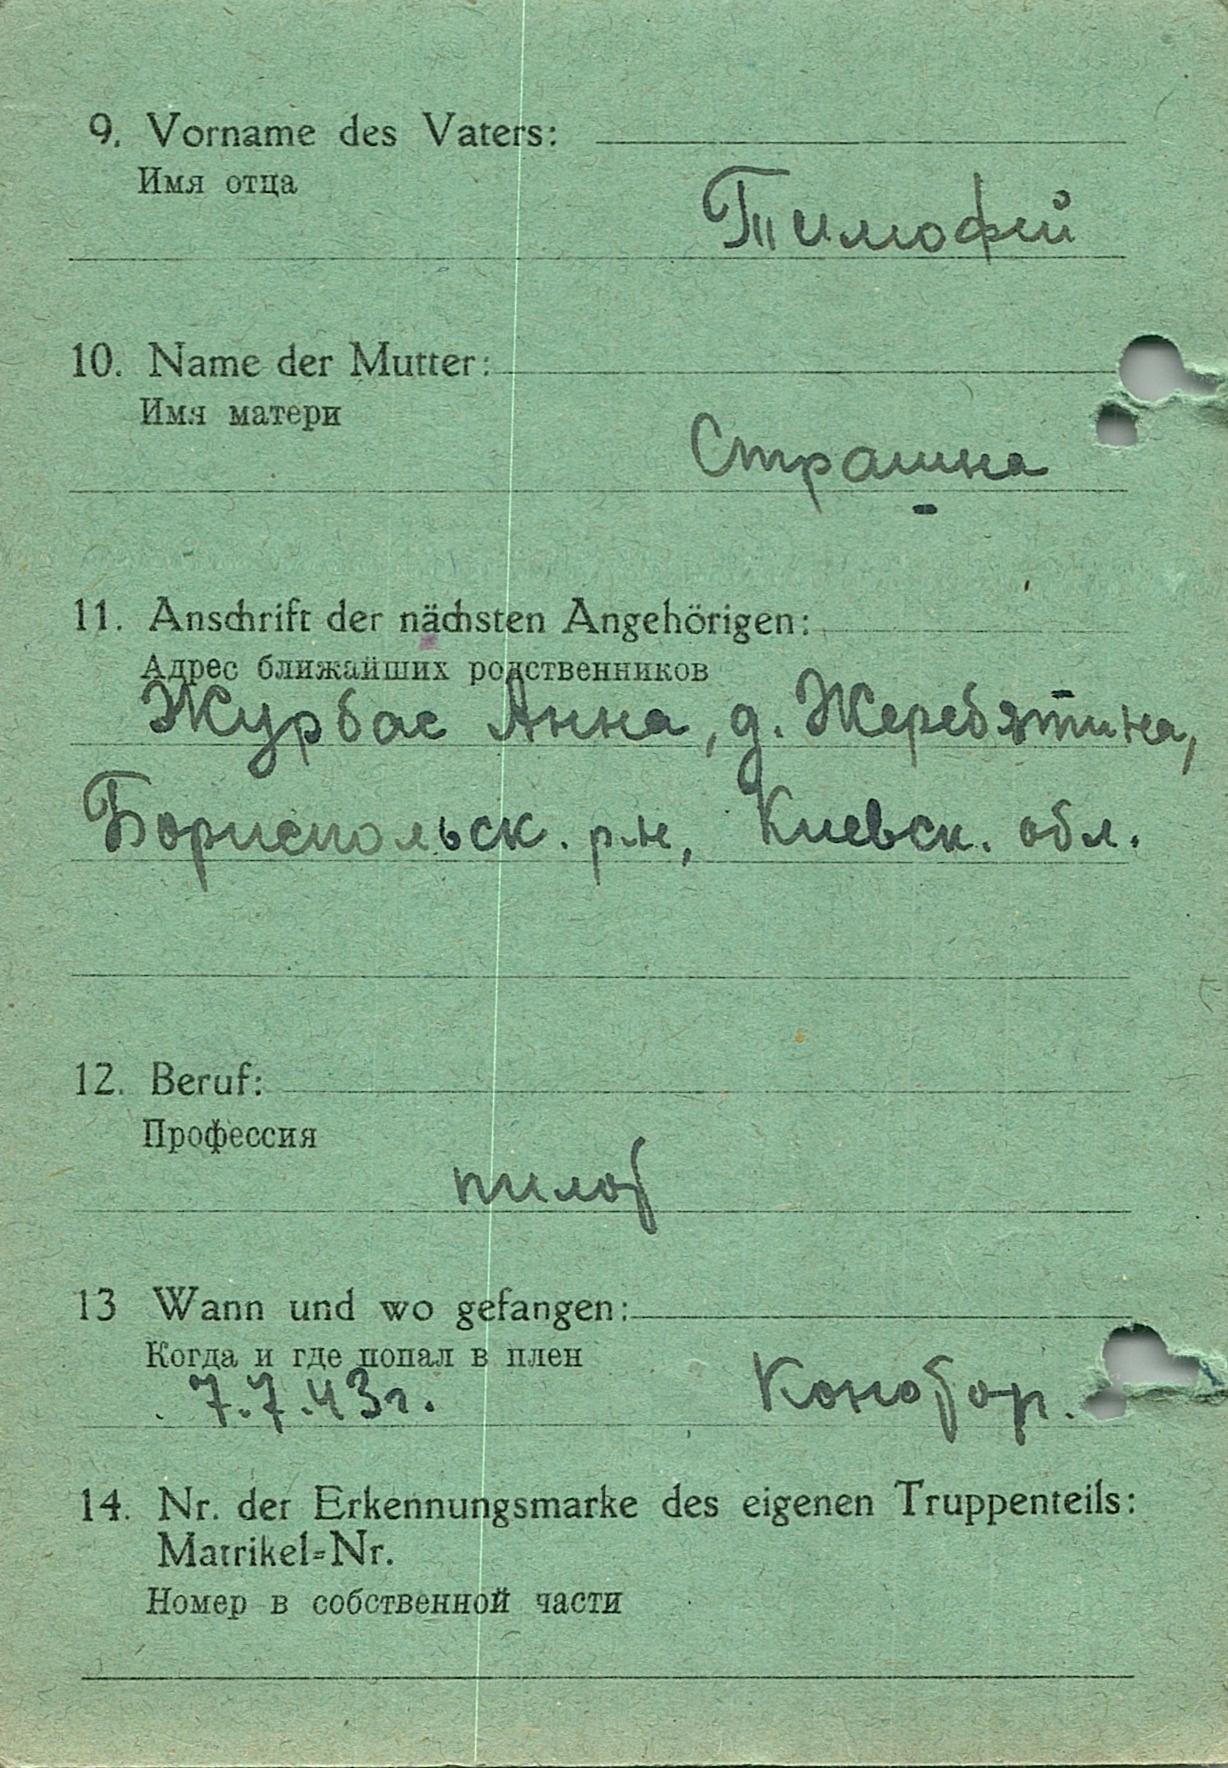 9. Vorname des Vaters:
Имя отца
Тимофей
10. Name der Mutter:
Имя матери
Страшна
11. Anschrift der nächsten Angehörigen:
Адрес ближайших родственников
Журбас Анна, д. Жеребятина,
Бориспольск. р-н, Киевск. обл.
12. Beruf:
Профессия
пилот
13 Wann und wo gefangen:
Когда и где попал в плен
7.7.43г. Конотоп.
14. Nr. der Erkennungsmarke des eigenen Truppenteils:
Matrikel=Nr.
Номер в собственной части